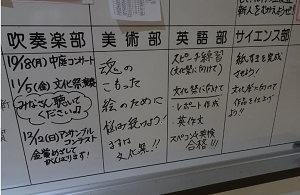 新人をむかえようぜ!
吹奏楽部
10/18(月)中庭コンサート
11/5(金)文化祭演奏
みなさん聴いて
ください♪
12/12(日)アンサンブル
コンテスト
金賞めざして
がんばります!
美術部
魂の
こもった
絵のために
悩み続けよう!
まずは
文化祭!!
英語部
スピーチ練習
(文化祭に向けて)
文化祭に向けて
・レポート作成
・英作文
スペコン&英検
合格!!!
サイエンス部
完成
させよう!
文化祭に向けて
作品を仕上げ
よう!!